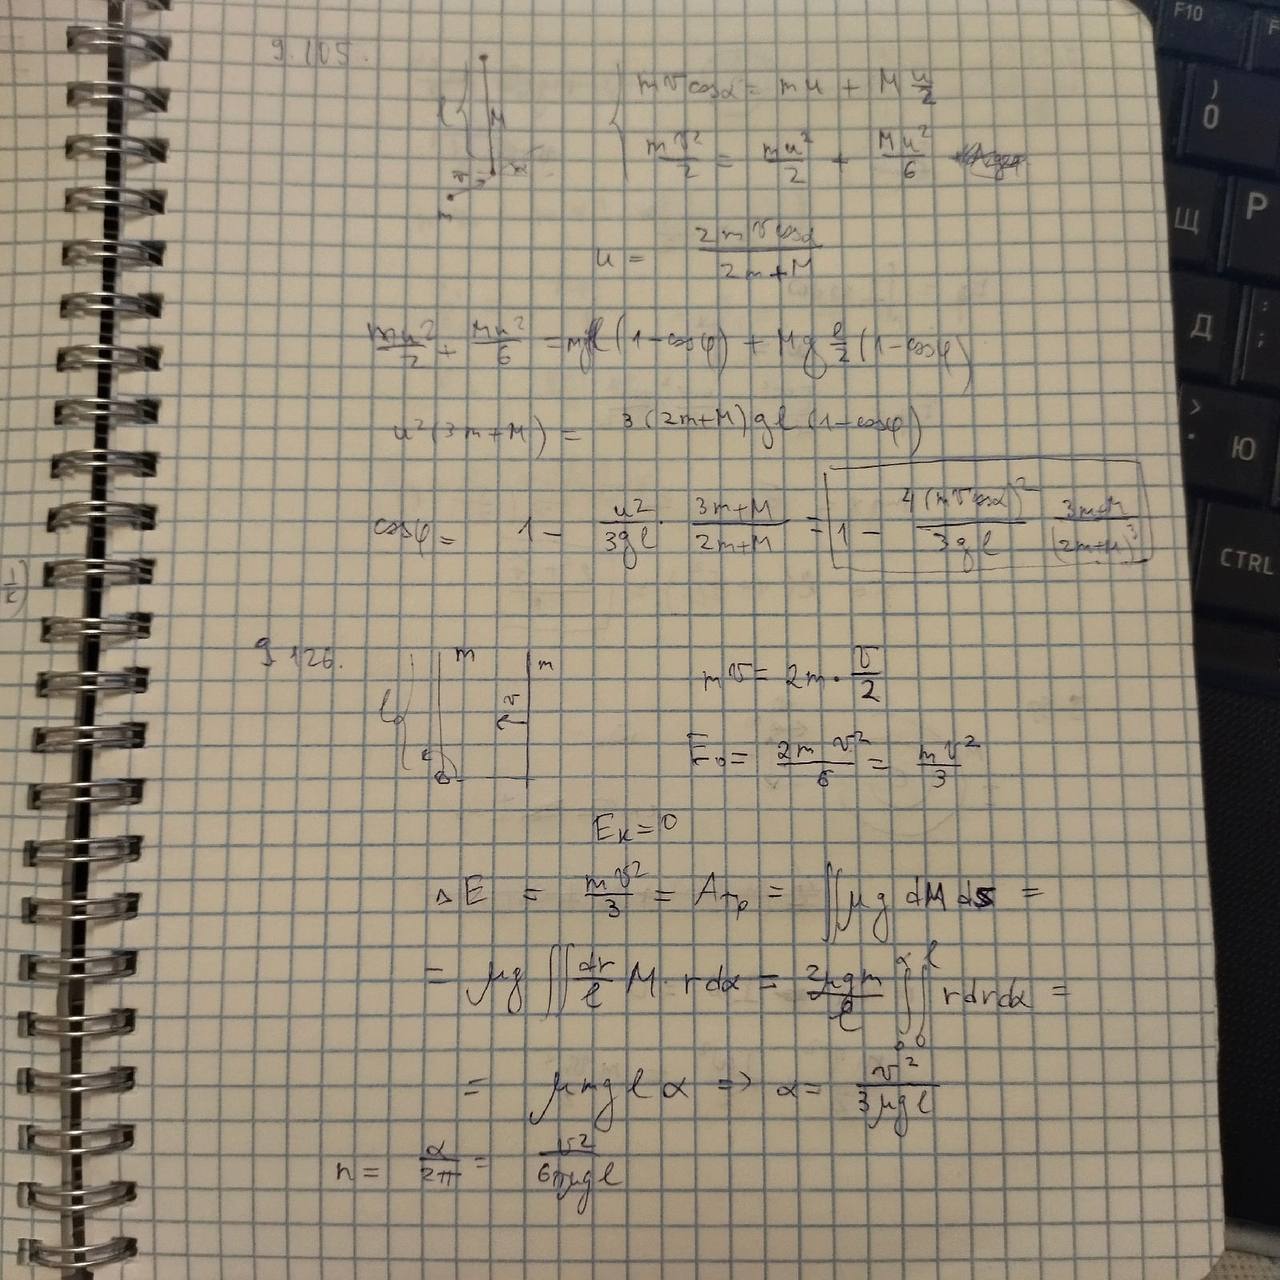 9.105.
l
M
m v cosα = mu + M u/2
mv²/2 = mu²/2 + Mu²/6
m
α
u = 2mv cosα / 2m+M
mu²/2 + Mu²/6 = mgl(1-cosφ) + Mg l/2 (1-cosφ)
u²(3m+M) = 3(2m+M)gl(1-cosφ)
cosφ = 1 - u²/3gl · 3m+M/2m+M = 1 - 4(mv cosα)²/3gl · 3m+M/(2m+M)³
9.126.
l
m
m
v
mv = 2m · v/2
E₀ = 2mv²/6 = mv²/3
Eк = 0
ΔE = mv²/3 = Aтр = ∬μg dM ds =
= μg ∬ dr/l M · r dα = 2μgm/l ∫₀^α ∫₀^l r dr dα =
= μmglα => α = v²/3μgl
n = α/2π = v²/6πμgl
F10
)
0
Щ
Р
Д
:
;
>
.
Ю
CTRL